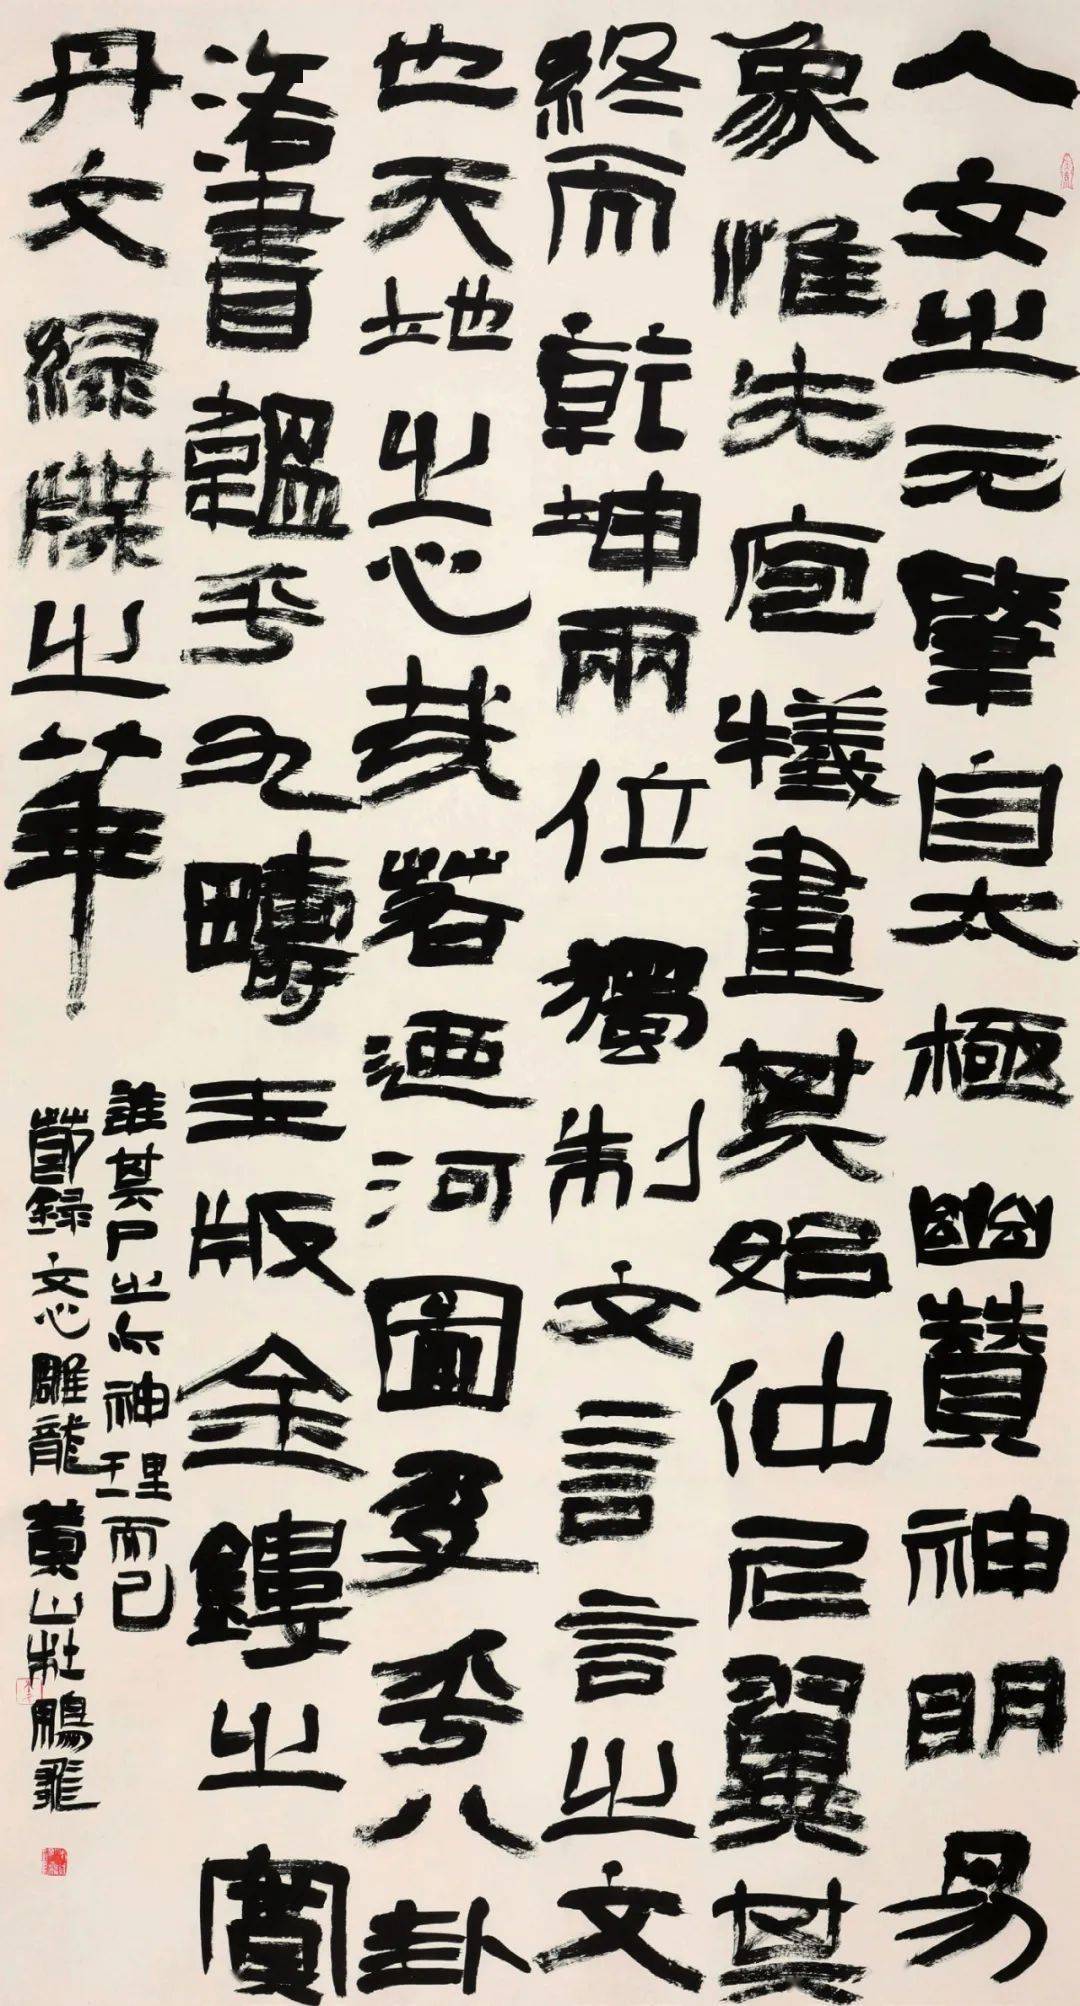 人文之元肇自太極幽贊神明易
象惟先庖犧畫其始仲尼翼其
終而乾坤兩位獨制文言言之文
也天地之心哉若迺河圖孕乎八卦
洛書韞乎九疇玉版金鏤之實
丹文綠牒之華
誰其尸之亦神理而已
節録文心雕龍黄山杜鵬飛